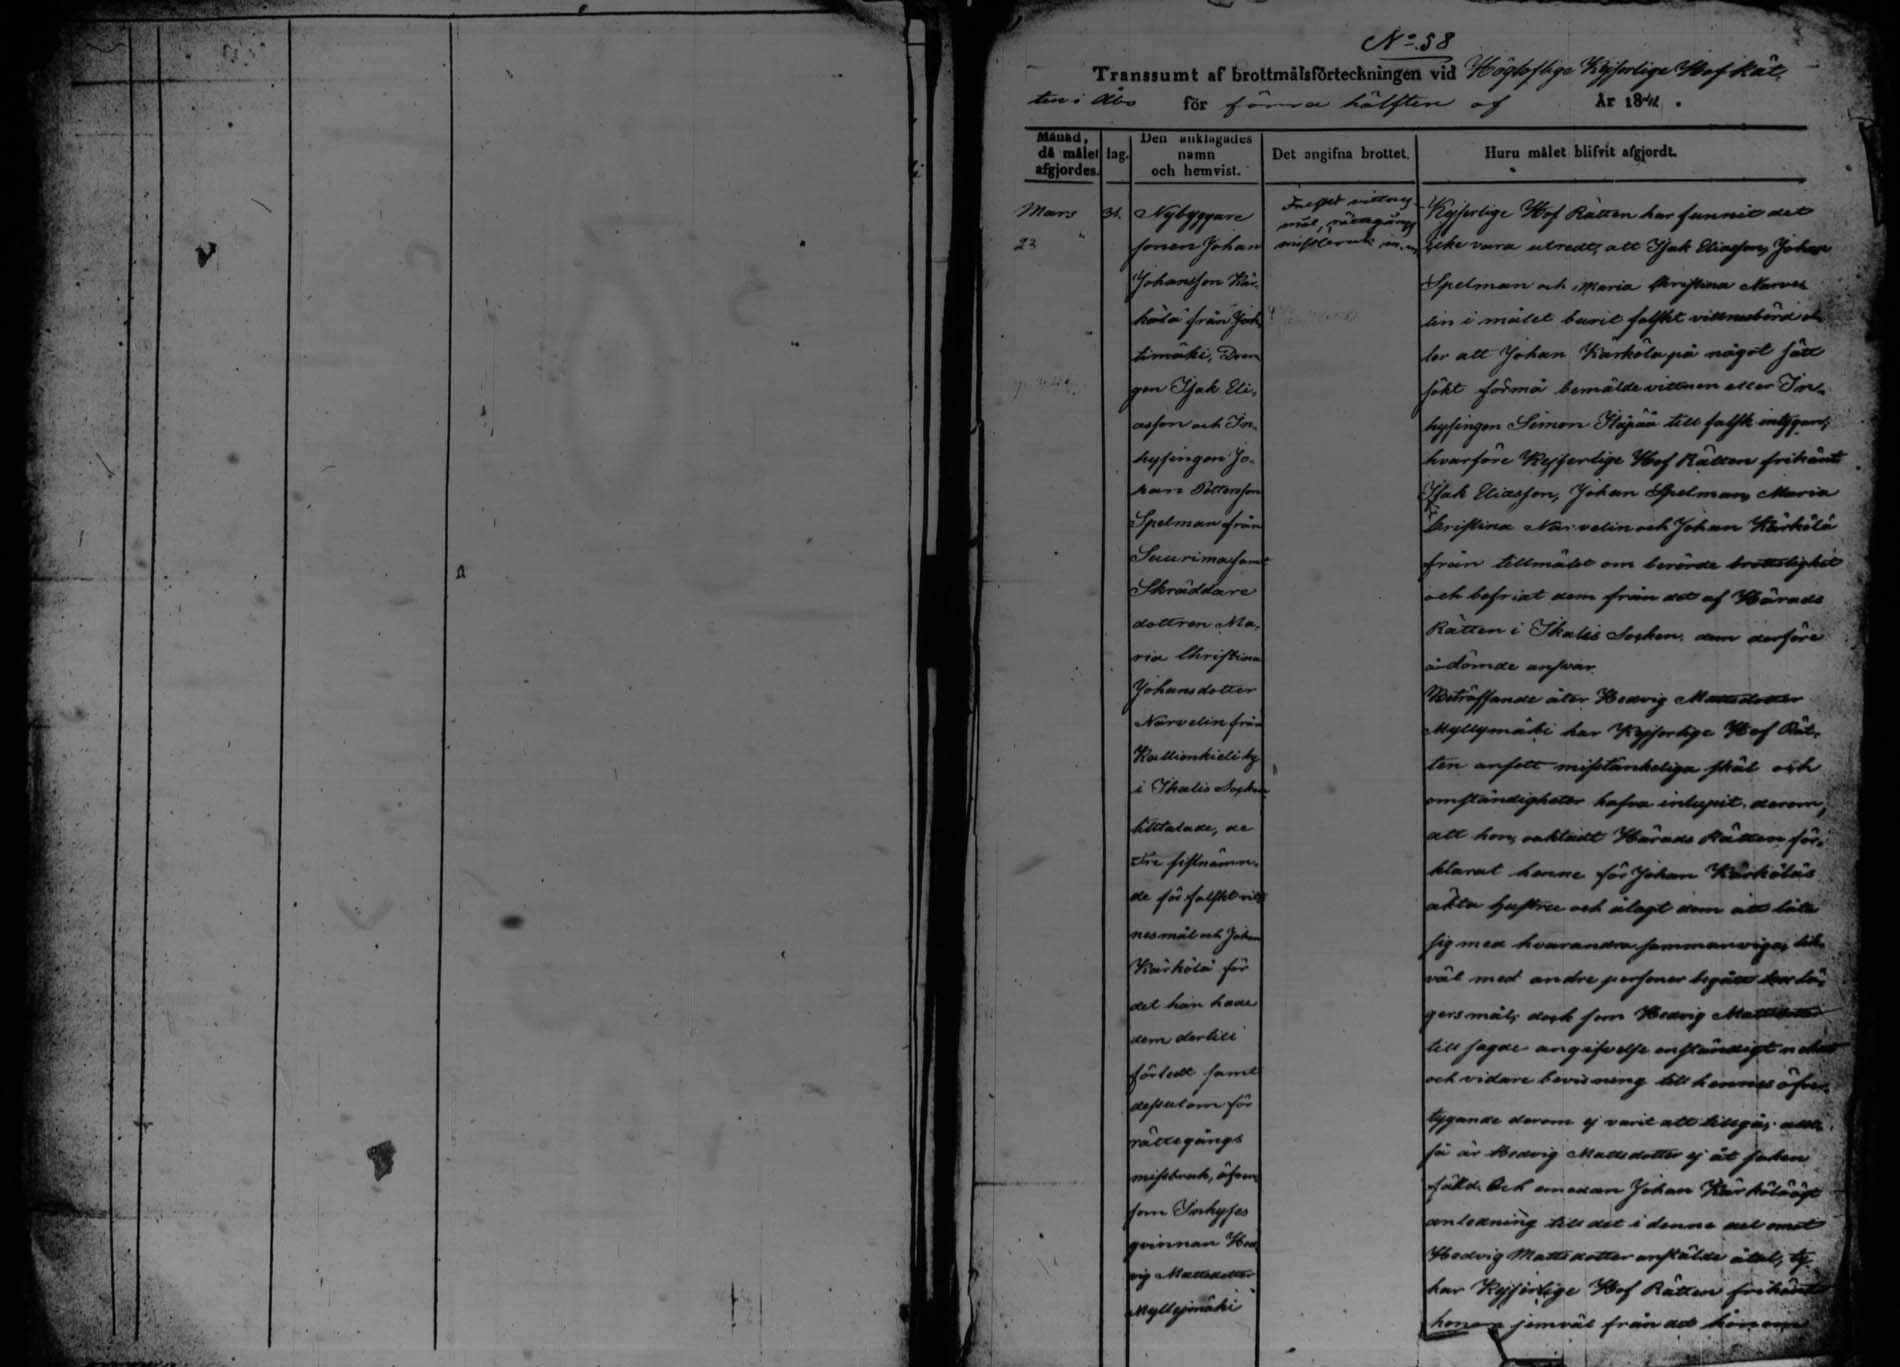 No. 58
Transsumt af brottmålsförteckningen vid Högloflige Kejserlige Hof Rät,
ten i Åbo för förra hälften af År 1842.
Månad, då målet afgjordes.
lag.
Den anklagades namn och hemvist.
Det angifna brottet.
Huru målet blifvit afgjordt.
Mars
23
31.
Nybyggare
sonen Johan
Johansson Kär,
kölä från Joh,
timäki, Dren
gen Isak Eli,
asson och In,
hysingen Jo,
han Pettersson
Spelman från
Suurimaa samt
Skräddare
dottren Ma,
ria Christina
Johansdotter
Narvelin från
Kallionkieli by
i Ikalis Socken
tilltalade, de
tre sistnämn,
de för falskt vitt
nesmål och Johan
Kärkölä för
det han hade
dem dertill
förledt samt
dessutom för
rättegångs
missbruk, äfven
som Inhyses
qvinnan Hed,
vig Mattsdotter
Myllymäki
vittnes
mål, rättegångs
missbruk m. m.
Kejserlige Hof Rätten har funnit det
icke vara utredt, att Isak Eliasson, Johan
Spelman och Maria Christina Narve,
lin i målet burit falskt vittnesbörd el,
ler att Johan Kärkölä på något sätt
sökt förmå bemälde vittnen eller In,
hysingen Simon till falsk intygan,
hvarföre Kejserlige Hof Rätten frikänt
Isak Eliasson, Johan Spelman, Maria
Christina Narvelin och Johan Kärkölä
från tillmälet om berörde brottslighet
och befriat dem från det af Härads
Rätten i Ikalis Socken dem derföre
ådömde ansvar.
Beträffande åter Hedvig Mattsdotter
Myllymäki har Kejserlige Hof Rät,
ten ansett misstänkeliga skäl och
omständigheter hafva inlupit derom,
att hon, oaktadt Härads Rätten för,
klarat henne för Johan Kärköläs
äkta hustru och ålagt dem att låta
sig med hvarandra sammanviga, lik,
väl med andre personer begått lä,
gersmål; dock som Hedvig Mattsdotter
till sagde angifvelse enständigt nekat
och vidare bevisning till hennes öfver,
tygande derom ej varit att tillgå; allt,
så är Hedvig Mattsdotter ej åt saken
fälld. Och emedan Johan Kärkölä ägt
anledning till det i denne del emot
Hedvig Mattsdotter anstälde åtal, ty
har Kejserlige Hof Rätten frikänt
honom jemväl från det honom